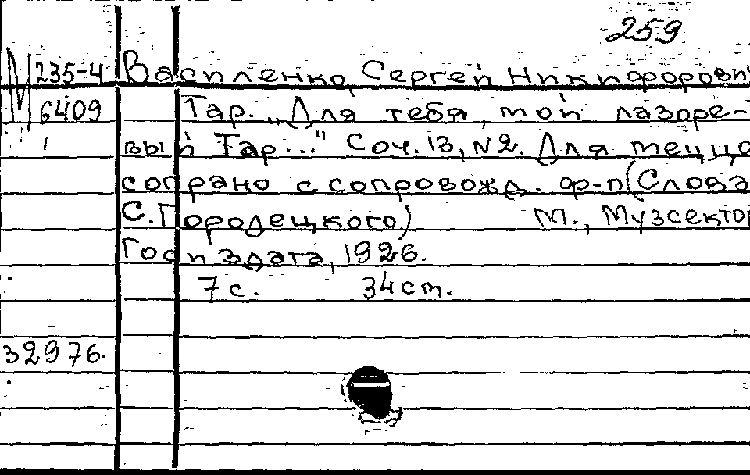 259
М 235-4 Василенко, Сергей Никифорови
6409 Гар. „Для тебя, мой лазоре-
вый Гар..." Соч. 13, №2. Для меццо
сопрано с сопровожд. ф-п (Слова
С. Городецкого) М., Музсектор
Госиздата, 1926.
7 с. 34 cm.
32976.